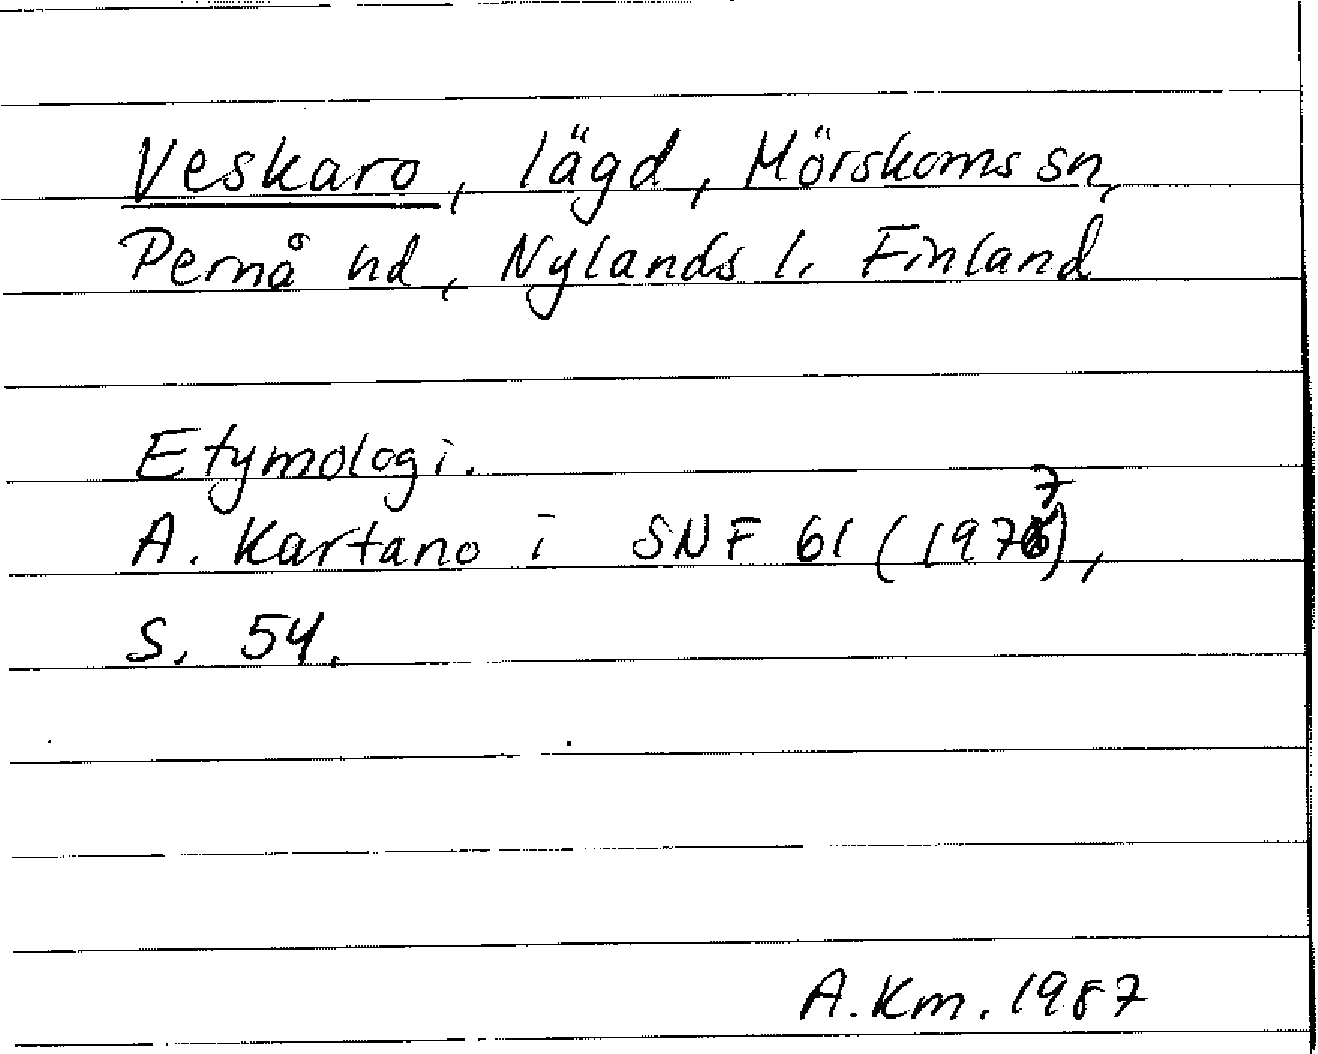 Veskaro, lägd, Mörskoms sn,
Pernå hd, Nylands l. Finland
Etymologi.
A. Kartano i SNF 61 (1977),
s. 54.
A.Km. 1987